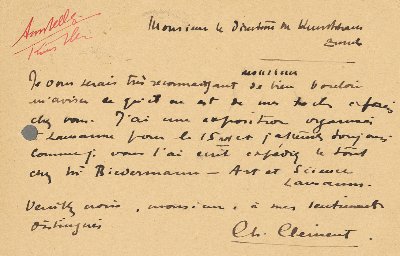 Ausstellg
Künstler
Monsieur le Directeur du Kunsthaus
Zurich
monsieur
Je vous serais très reconnaissant de bien vouloir
m'aviser ce qu'il en est de mes toiles exposées
chez vous. J'ai une exposition organisée
à Lausanne pour le 15 et j'attends toujours
comme je vous l'ai écrit expédiez le tout
chez Mr Biedermann – Art et Science
Lausanne.
Veuillez croire, monsieur, à mes sentiments
distingués
Ch. Clément.